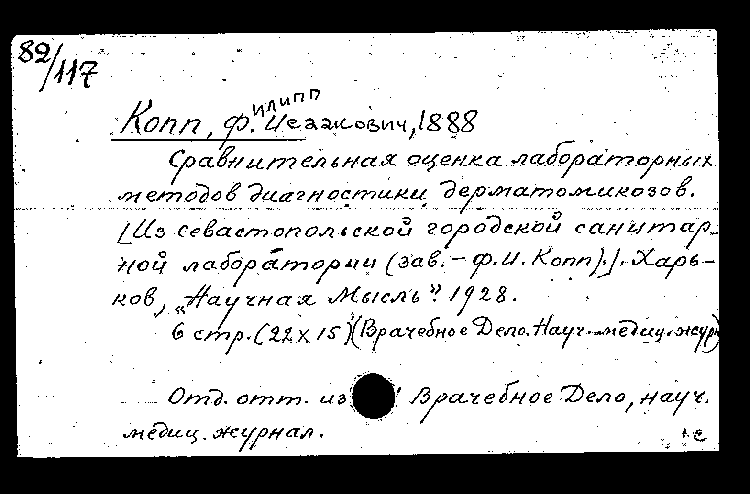 82/117
Копп, Ф.илипп Исаакович, 1888
Сравнительная оценка лабораторных
методов диагностики дерматомикозов.
[Из севастопольской городской санитар-
ной лаборатории (зав. - Ф.И. Копп).]. Харь-
ков, „Научная Мысль". 1928.
6 стр. (22х15) (Врачебное Дело. Науч. медиц. журн)
Отд. отт. из Врачебное Дело, науч.
медиц. журнал.